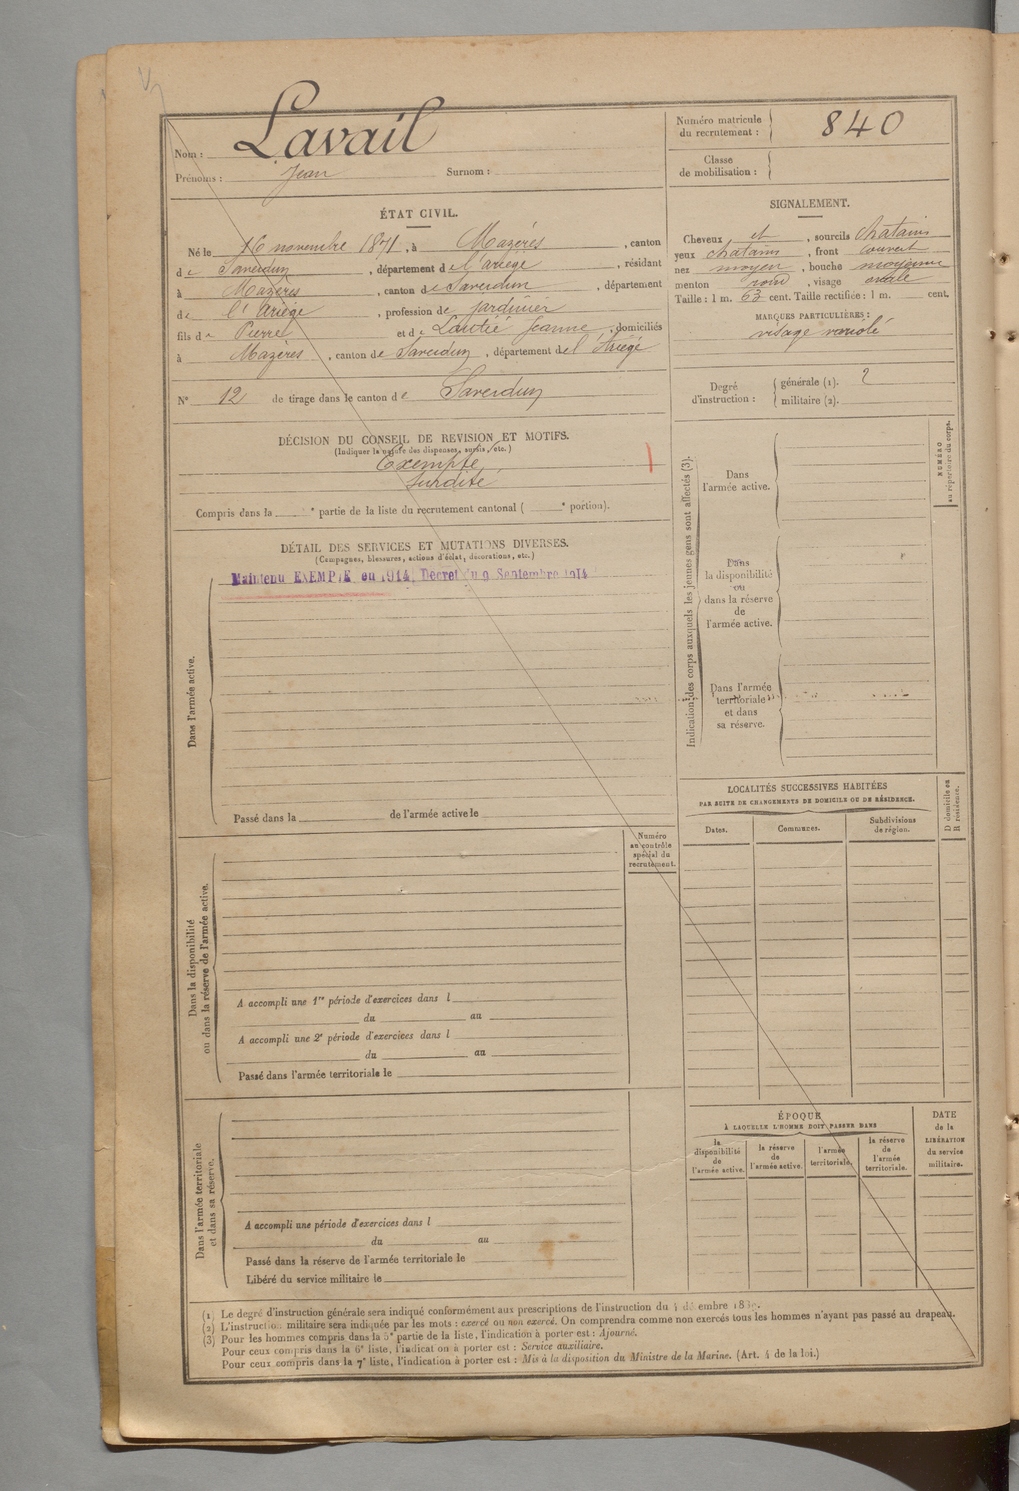 Nom : Lavail
Prénoms : Jean Surnom :
Numéro matricule
du recrutement : 840
Classe
de mobilisation :
ÉTAT CIVIL.
Né le 16 novembre 1871, à Mazères, canton
de Saverdun, département de l'ariège, résidant
à Mazères, canton de Saverdun, département
de l'Ariège, profession de jardinier
fils de Pierre et de Lautié Jeanne, domiciliés
à Mazères, canton de Saverdun, département de l'Ariège
N° 12 de tirage dans le canton de Saverdun
SIGNALEMENT.
Cheveux et, sourcils chatains
yeux chatains, front couvert
nez moyen, bouche moyenne
menton rond, visage ovale
Taille : 1 m. 63 cent. Taille rectifiée : 1 m. cent.
MARQUES PARTICULIÈRES :
visage variolé
Degré
d'instruction : générale (1). 2
militaire (2).
DÉCISION DU CONSEIL DE REVISION ET MOTIFS.
(Indiquer la nature des dispenses, sursis, etc.)
Exempté
surdité
Compris dans la e partie de la liste du recrutement cantonal ( e portion).
DÉTAIL DES SERVICES ET MUTATIONS DIVERSES.
(Campagnes, blessures, actions d'éclat, décorations, etc.)
Maintenu EXEMPTÉ en 1914, Décret du 9 Septembre 1914
Dans l'armée active.
Passé dans la de l'armée active le
Indication des corps auxquels les jeunes gens sont affectés (3).
Dans
l'armée active.
Dans
la disponibilité
ou
dans la réserve
de
l'armée active.
Dans l'armée
territoriale
et dans
sa réserve.
NUMÉRO
au répertoire du corps.
LOCALITÉS SUCCESSIVES HABITÉES
PAR SUITE DE CHANGEMENTS DE DOMICILE OU DE RÉSIDENCE.
Dates. Communes. Subdivisions
de région.
D domicile ou
R résidence.
Numéro
au contrôle
spécial du
recrutement.
Dans la disponibilité
ou dans la réserve de l'armée active.
A accompli une 1re période d'exercices dans l
du au
A accompli une 2e période d'exercices dans l
du au
Passé dans l'armée territoriale le
Dans l'armée territoriale
et dans sa réserve.
A accompli une période d'exercices dans l
du au
Passé dans la réserve de l'armée territoriale le
Libéré du service militaire le
ÉPOQUE
À LAQUELLE L'HOMME DOIT PASSER DANS
la
disponibilité
de
l'armée active.
la réserve
de
l'armée active.
l'armée
territoriale.
la réserve
de
l'armée
territoriale.
DATE
de la
LIBÉRATION
du service
militaire.
(1) Le degré d'instruction générale sera indiqué conformément aux prescriptions de l'instruction du
(2) L'instruction militaire sera indiquée par les mots : exercé ou non exercé. On comprendra comme non exercés tous les hommes n'ayant pas passé au drapeau.
(3) Pour les hommes compris dans la 5e partie de la liste, l'indication à porter est : Ajourné.
Pour ceux compris dans la 6e liste, l'indication à porter est : Service auxiliaire.
Pour ceux compris dans la 7e liste, l'indication à porter est : Mis à la disposition du Ministre de la Marine. (Art. 4 de la loi.)